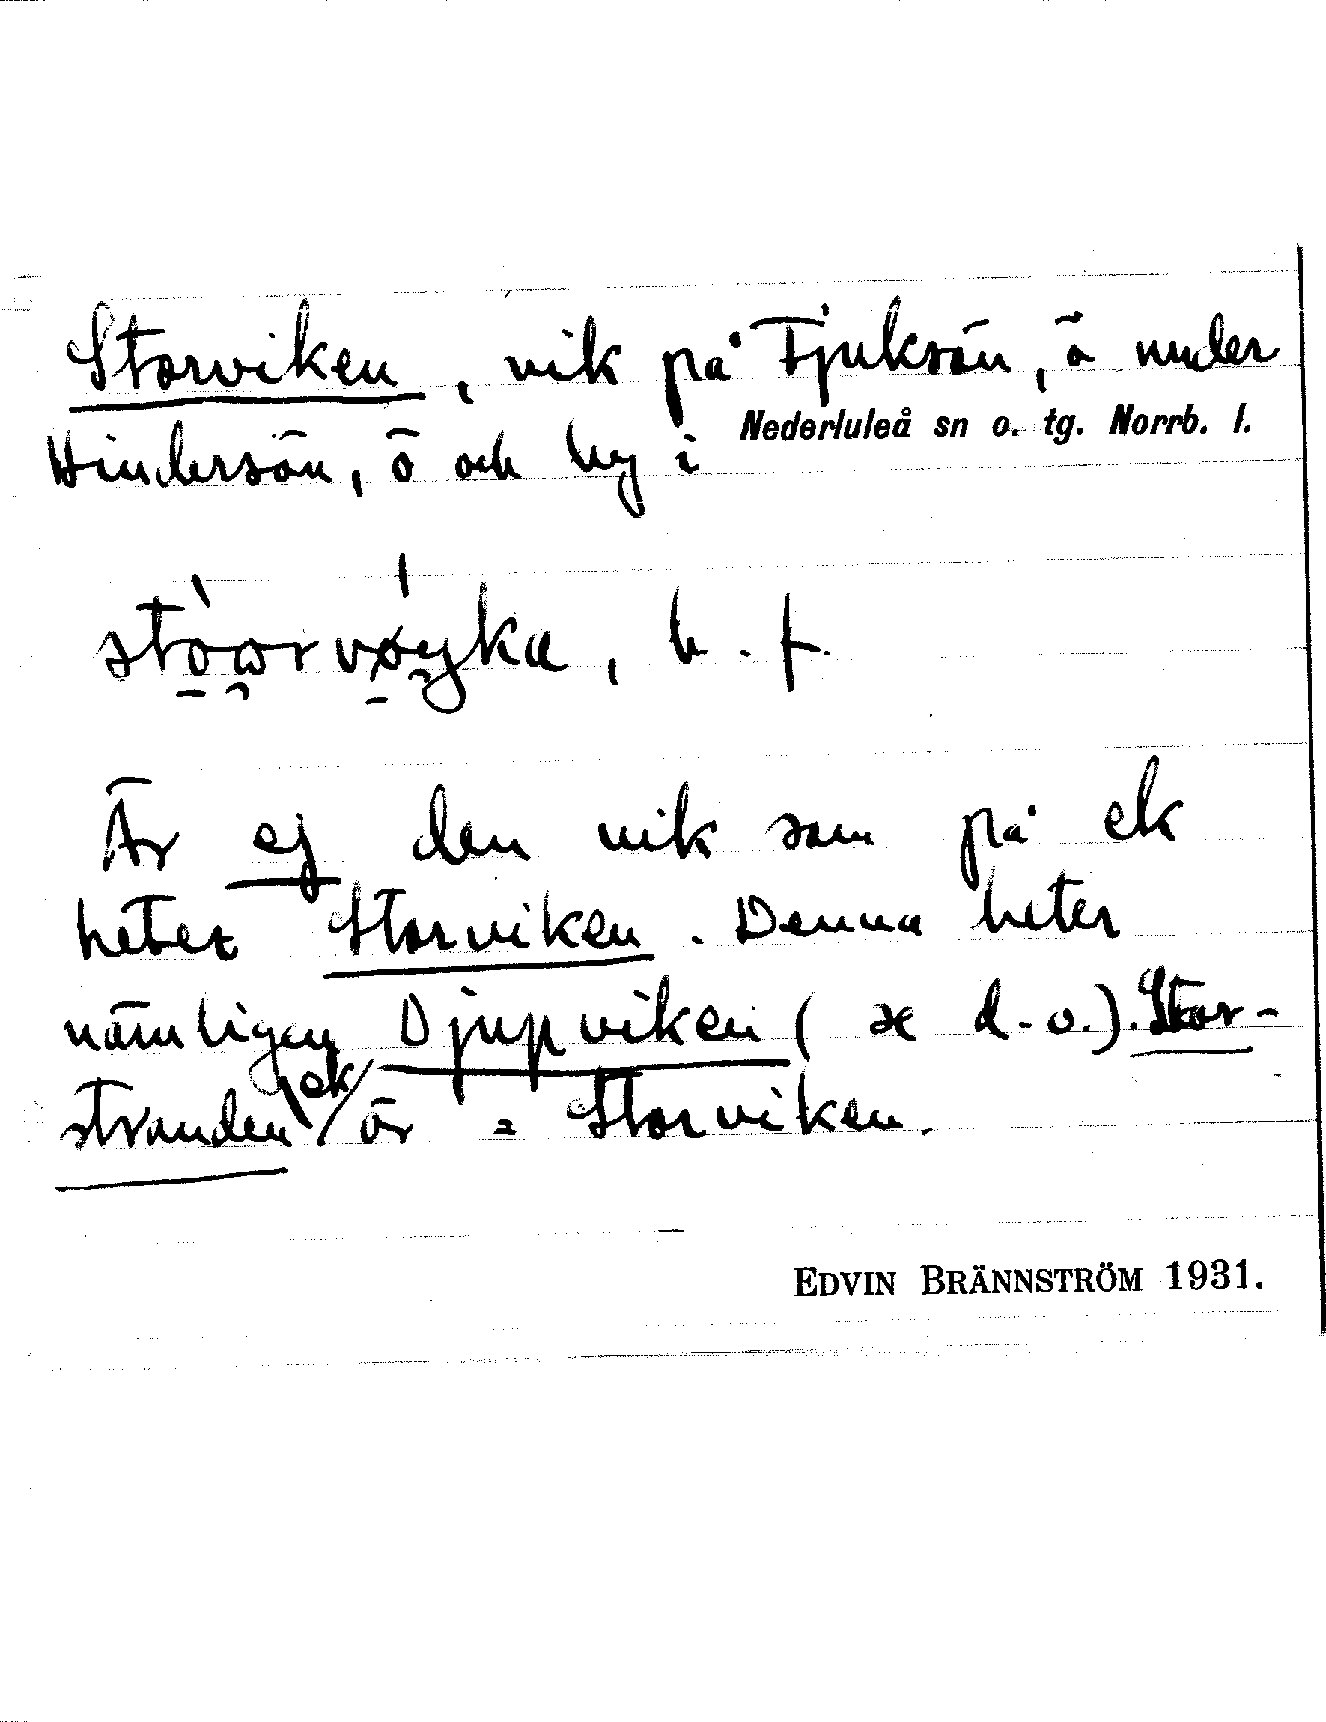 Storviken, vik på Tjuksön, ö under
Hindersön, ö och by i Nederluleå sn o. tg. Norrb. l.
stòωrvøyka, b. f.
Är ej den vik som på ek
heter Storviken. Denna heter
nämligen Djupviken (se d. o.). Stor-
stranden \ek/ är = Storviken.
EDVIN BRÄNNSTRÖM 1931.